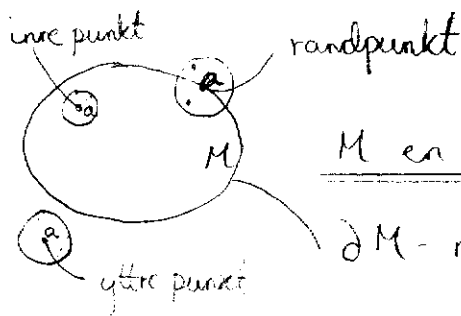 inre punkt
randpunkt
a
a
M
M en
a
∂M - r
yttre punkt